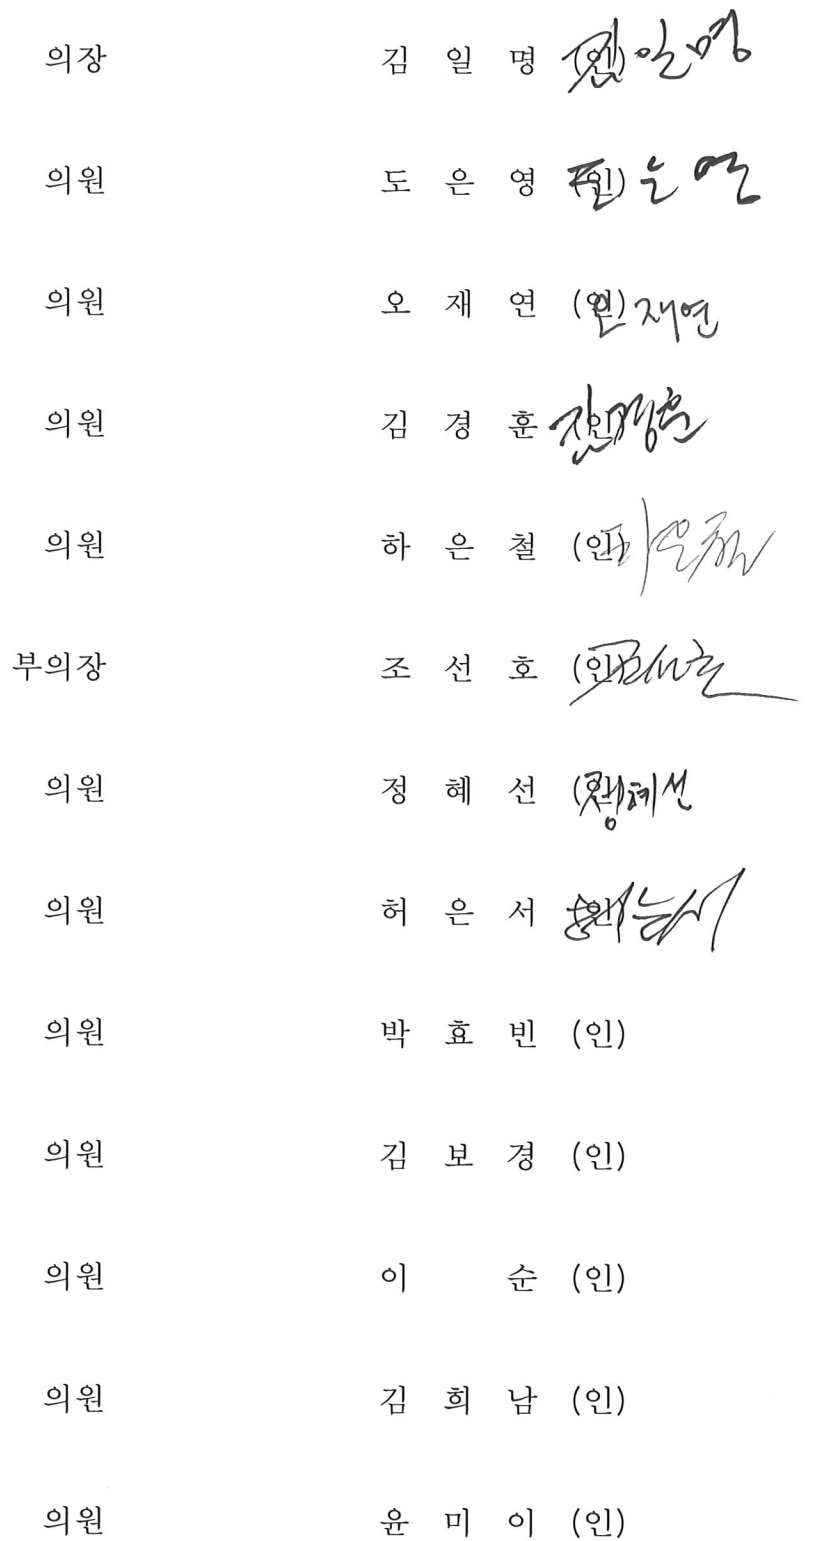 의장 김 일 명 (인) 김일명
의원 도 은 영 (인) 도은영
의원 오 재 연 (인) 오재연
의원 김 경 훈 (인) 김경훈
의원 하 은 철 (인) 하은철
부의장 조 선 호 (인) 조선호
의원 정 혜 선 (인) 정혜선
의원 허 은 서 (인) 허은서
의원 박 효 빈 (인)
의원 김 보 경 (인)
의원 이 순 (인)
의원 김 희 남 (인)
의원 윤 미 이 (인)